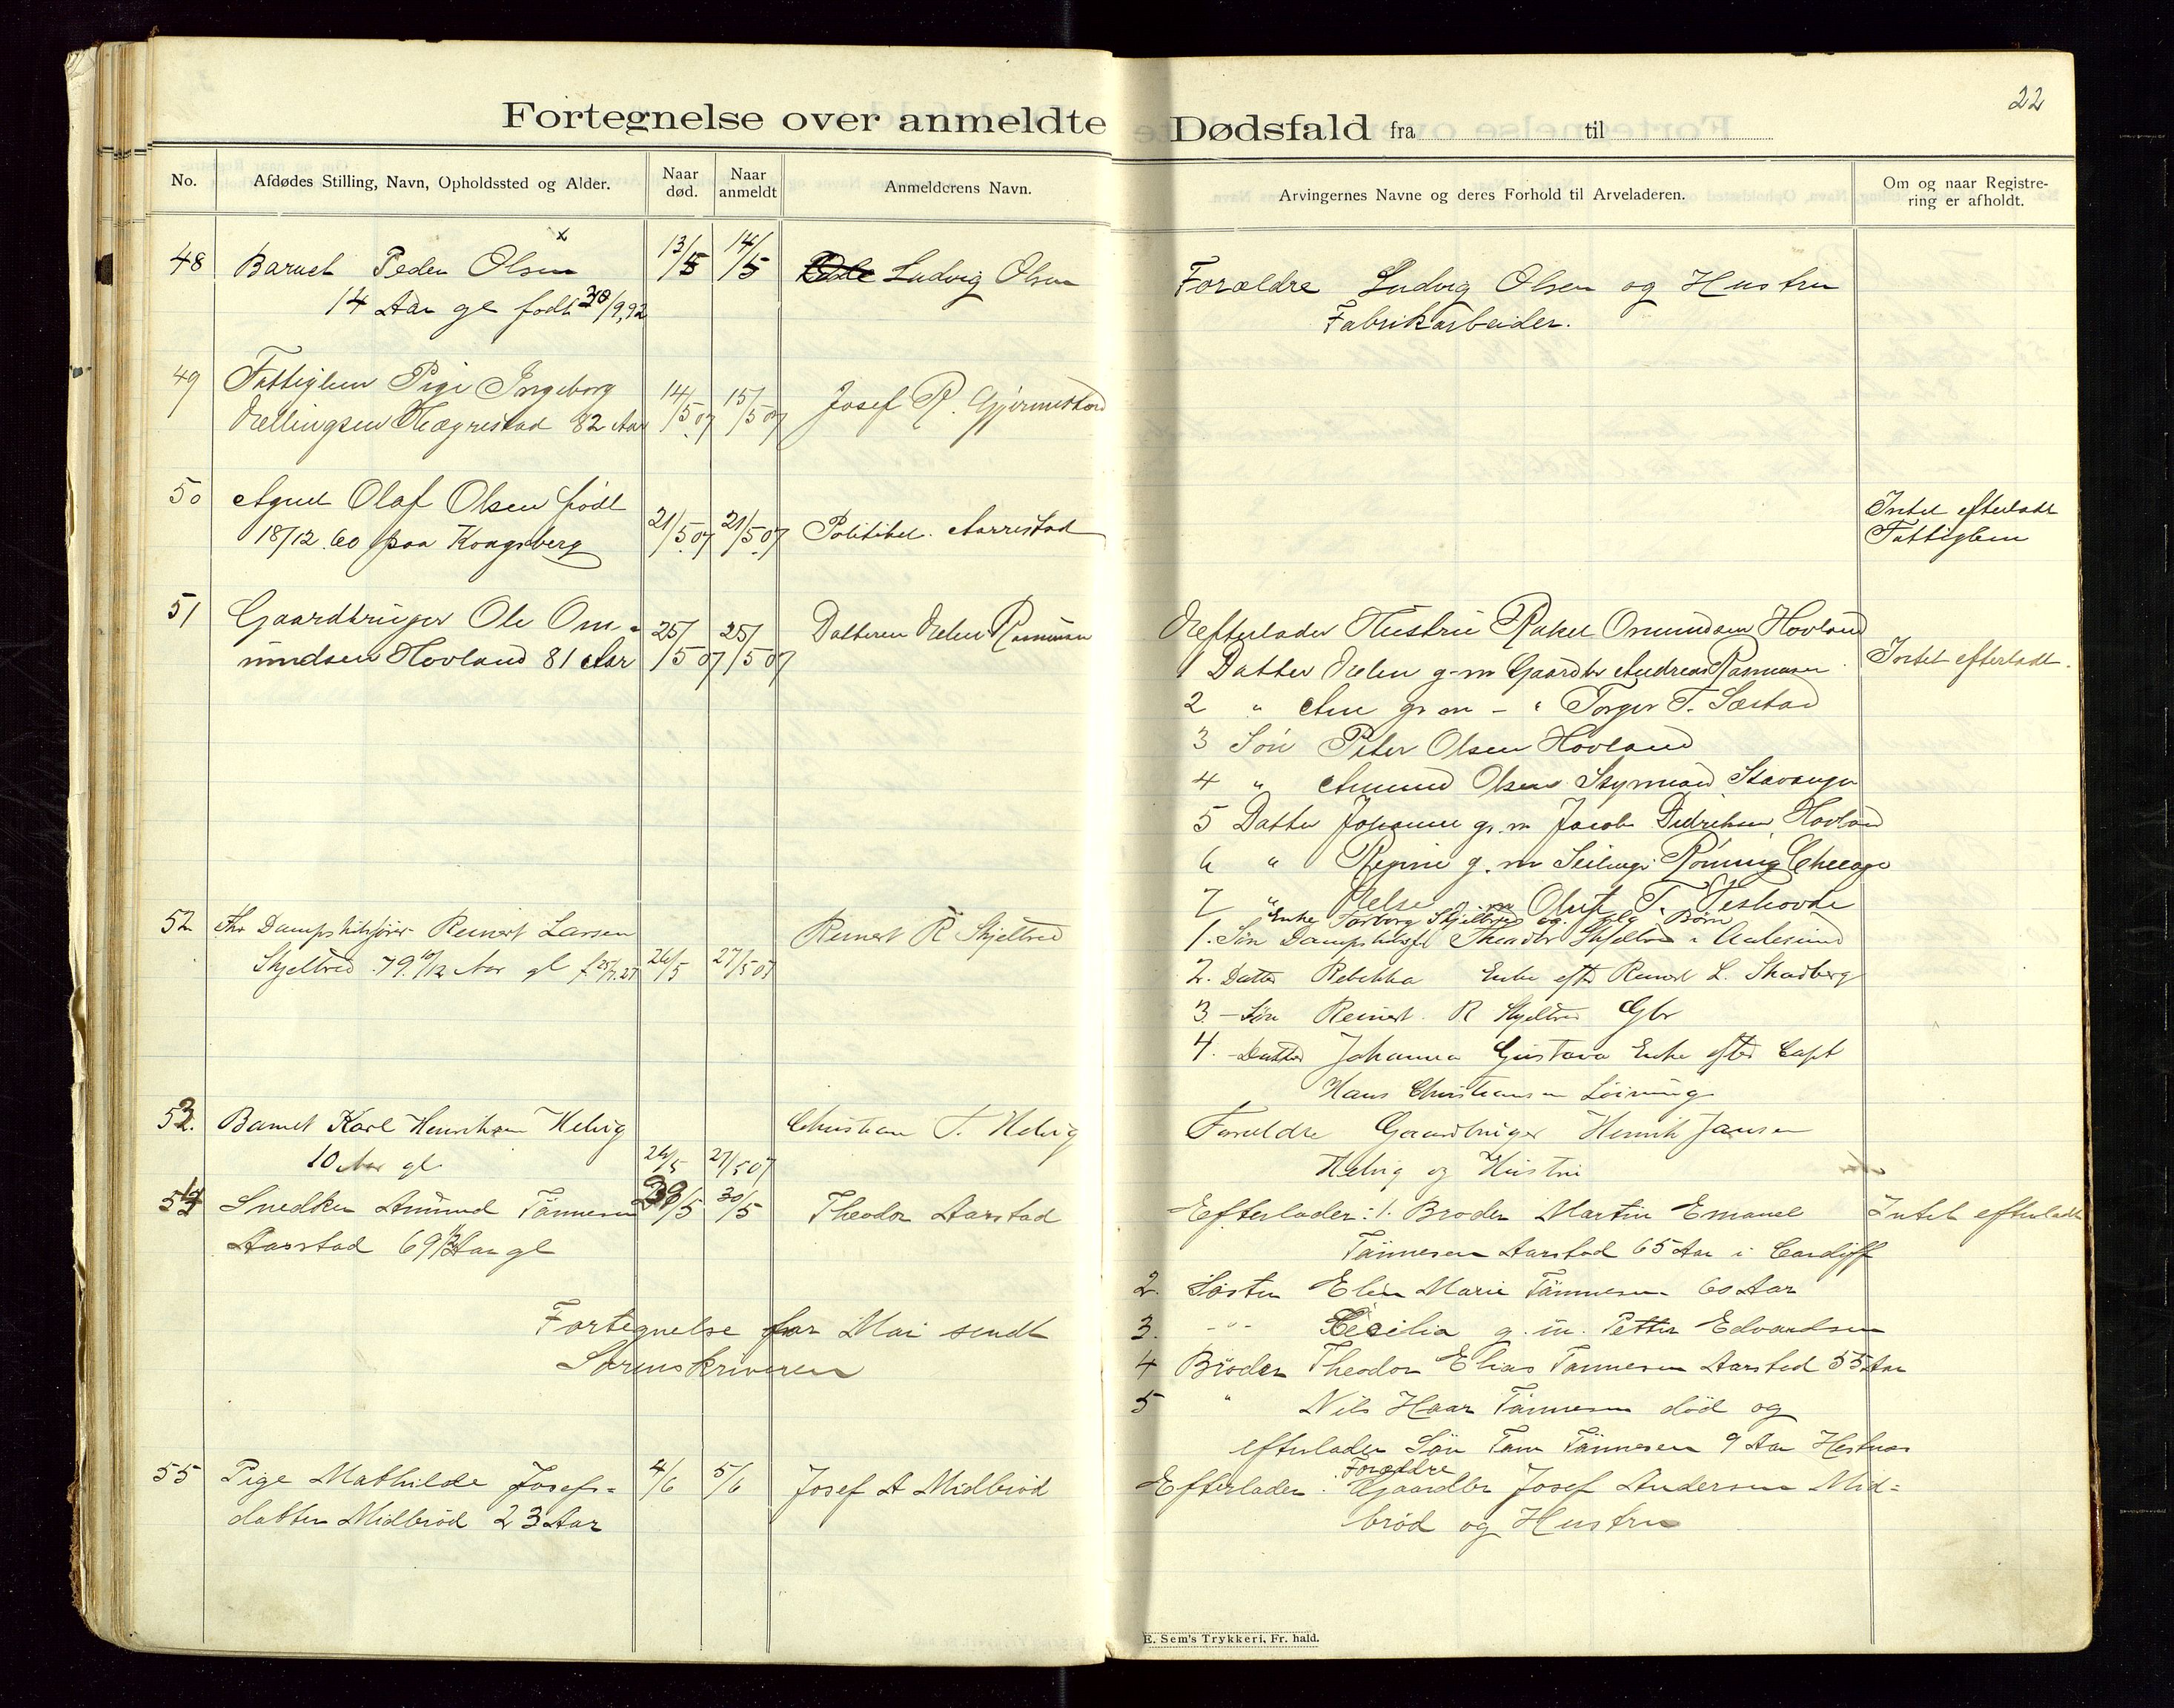 22
Fortegnelse over anmeldte Dødsfald fra til
No. Afdødes Stilling, Navn, Opholdssted og Alder. Naar død. Naar anmeldt Anmelderens Navn. Arvingernes Navne og deres Forhold til Arveladeren. Om og naar Registrering er afholdt.
48 Barnet Peder Olsen x 13/5 14/5 Ludvig Olsen Forældre Ludvig Olsen og Hustru
14 Aar gl født 30/9,92 Fabrikarbeider.
49 Fattiglem Pige Ingeborg 14/5 07 15/5 07 Josef R. Gjermestad
Ellingsen Hægrestad 82 Aar
50 Agent Olaf Olsen født 21/5 07 21/5 07 Politibet. Aarrestad Intet efterladt
18/12.60 paa Kongsberg Fattiglem
51 Gaardbruger Ole Om- 25/5 07 25/5 07 Datteren Elen Rasmusen Efterlader Hustru Rakel Omundsen Hovland
mundsen Hovland 81 Aar 1 Datter Elen g.m Gaardbr Andreas Rasmusen Intet efterladt.
2 " Ane gr m - " Torger T. Sæstad
3 Søn Peter Olsen Hovland
4 " Amund Olsen Styrmand Stavanger
5 Datter Johanne gr. m Jacob Didriksen Hovland
6 " Regine g. m Rønning Chicago
7 " Else g. m Oluf T.
52 Fhv Dampskibsfører Reinert Larsen Reinert R Skjelbred Enke Torborg Skjelbred og flg Børn
Skjelbred 79.10/12 Aar gl f. 25/7.27 26/5 27/5 07 1. Søn Dampskibsf Theodor Skjelbred i Aalesund
2. Datter Rebekka Enke efter Reinert L. Skadberg
3 - Søn Reinert R Skjelbred Gbr
4. - Datter Johanna Gustava Enke efter Capt
Hans Christiansen Løining
53. Barnet Karl Henriksen Helvig 26/5 27/5 07 Christian T. Helvig Forældre Gaardbruger Henrik Jansen
10 Aar gl. Helvig og Hustru
54 Snedker Amund Tønnesen 29/5 30/5 Theodor Aarstad Efterlader: 1. Broder Martin Emanuel Intet efterladt
Aarstad 69 Aar gl Tønnesen Aarstad 65 Aar i Cardiff
2. Søster Elen Marie Tønnesen 60 Aar
Fortegnelse for Mai sendt 3. -"- Cecilia g. m. Petter Edvardsen
Sorenskriveren 4 Broder Theodor Elias Tønnesen Aarstad 55 Aar
5 " Nils Haar Tønnesen død og
efterlader Søn Tønnesen 9 Aar Hestnes
55 Pige Mathilde Josefs= 4/6 5/6 Josef A Midbrød Efterlader. Forældre Gaardbr Josef Andersen Mid=
datter Midbrød 23 Aar brød og Hustru
E. Sem's Trykkeri, Fr. hald.